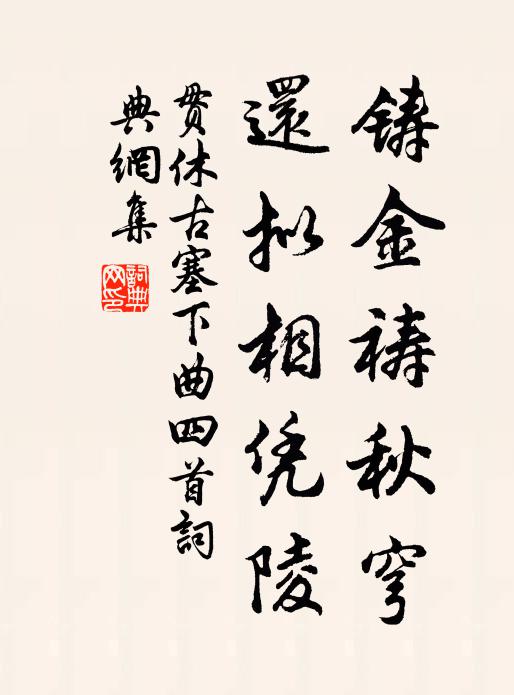 铸金祷秋穹
還拟相凭陵
贯休古塞下曲四首詞
典網集
詞典网印